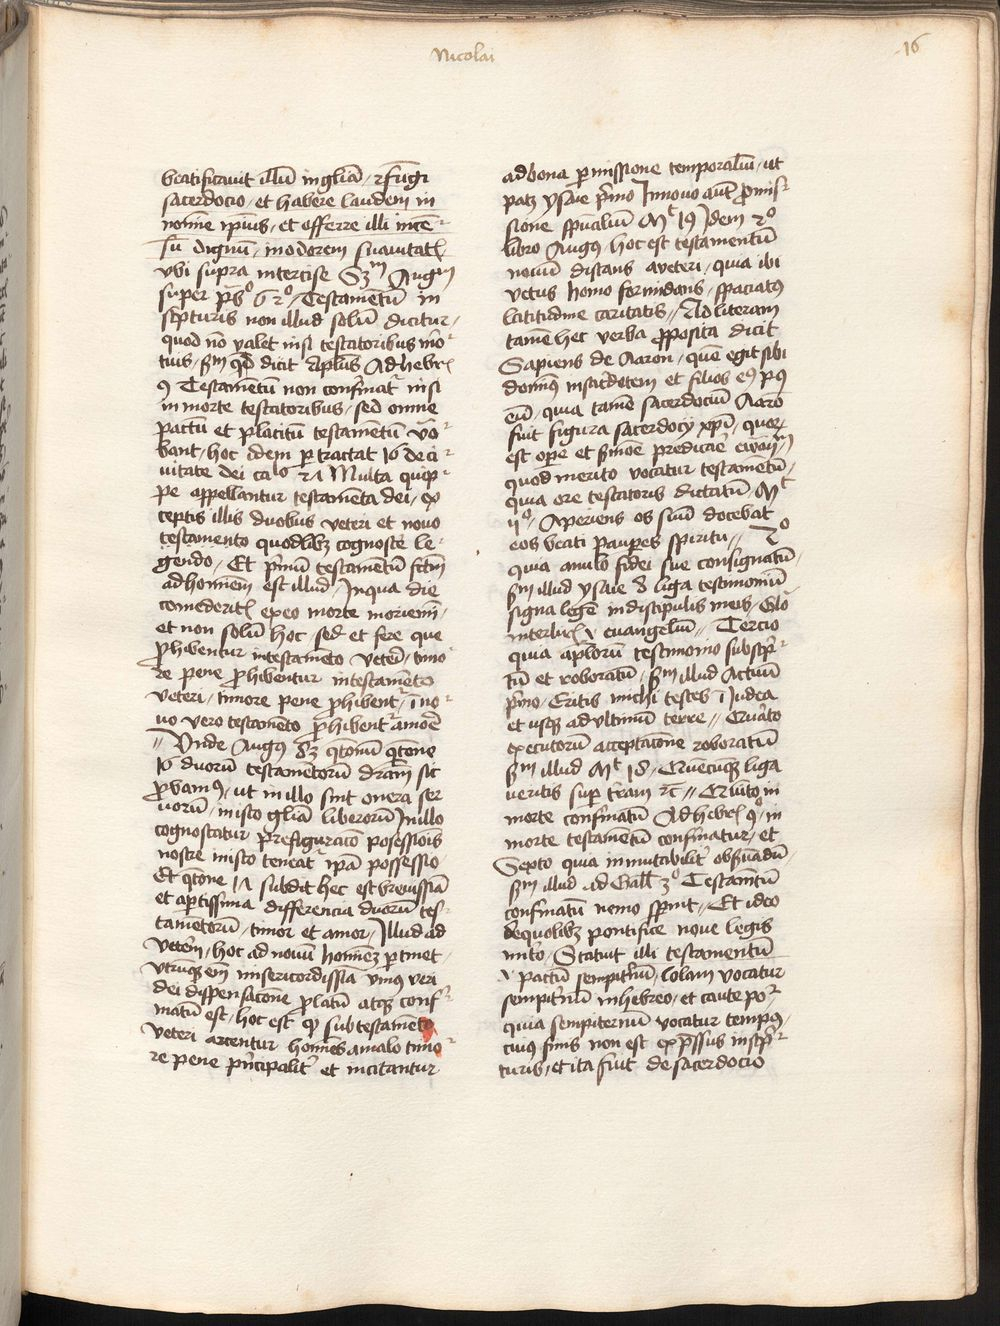 Nicolai
16
beatificavit illū in gliā / ⁊ fūgi
sacerdocio / et habere laudem in
nomīe ipius / et offerre illi incē
sū dignū / in odorem suavitatꝭ
vbi supra intercise Scdm Augm
super ps 62º / Testamentū in
scpturis non illud solū dicitur /
quod nō valet nisi testatoribus mō
tuis / scdm qd dicit aplus Ad hebrꝭ
9 Testamentū non confirmatˀ nisi
in morte testatoribus / sed omne
pactū et placitū testamentū vo
bant / hoc idem ptractat 16 de ci
uitate dei caº 27 Multa quip
pe appellantur testamenta dei / ex
ceptis illis duobus veteri et novo
testamento quodlibꝫ cognoste le
gendo / Et pmū testamentū fctm
ad hominem est illud / In qua die
comederitꝭ ex eo morte moriemī /
et non solū hoc / sed et fere que
phibentur in testamēto veteri / timo
re pene phibentur in testamēto
veteri / timore pene phibentˀ ī no
uo vero testamēto phibentˀ amoē
// Vnde Augus 83 qōnū qōne
16 duorū testamētorū dram sic
pbamꝰ / ut in illo sint onera ser
uorū / in isto gliā liberorū In illo
cognoscatur prefiguracō posessiōis
nostre in isto teneatˀ ipā possessio
Et qōne 17 subdit hec est brevissiā
et aptissima differencia duorū tes
tamētorū / timor et amor / Illud ad
veterē / hoc ad nouū hominē ptinet /
vtrūqꝫ em misericordissīa vnius veri
dei dispensacōne platū atqꝫ conf
matū est / hoc est qꝫ sub testamēto
veteri arcentur homines a malo timo
re pene pncipalitˀ et incitantur
ad bona pmissione temporaliū / ut
patꝫ ysaie pmo In novo autē pmis
sione spūaliū Mt 19 Idem 2º
libro Augus hoc est testamentū
novū distans a veteri / quia ibi
vetus homo formidans / spaciatꝰ
latitudine caritatis // Ad literam
tamē hec verba pposita dicit
Sapiens de Aaron / quē egit sibi
dominꝰ in sacerdotem et filios eꝰ pꝰ
eū / quia tamē sacerdociū Aarō
fuit figura sacerdocij xpi / quor
est ope et smōe predicaē ewāgm
quod merito vocatur testamētū /
quia ore testatoris dictatū / Mt
ijº / Aperiens os suū docebat
eos beati pauperes spiritu // 2º
quia anulo fidei sue consignatū /
scdm illud ysaie 8 liga testimoniū
signa legē in discipulis meis / Glō
interlinꝭ v euangeliū // Tercio
quia aplorū testimonio subscp
tū et roboratū / scdm illud Actuū
pmo / Eritis michi testes ī Judea
et usqꝫ ad ultimū terre // Quarto
executorū acceptacōne roboratū
scdm illud Mt 18 / Quecūqꝫ liga
ueritis sup terram ⁊c // Quīto in
morte confirmatū Ad hebreꝭ 9º / in
morte testamentū confirmatur / et
Septo quia immutabilitˀ obseruādū /
scdm illud ad Gallꝭ 3º Testamētū
confirmatū nemo spernit // Et ideo
de quolibꝫ pontifice nove legis
infˀto / Statuit illi testamentū
v pactū sempitˀnū / Colam vocatur
sempitˀnū in hebreo / et caute po
quia sempiternū vocatur tempus /
cuiꝰ finis non est expressus in scp
turis / et ita fuit de sacerdocio